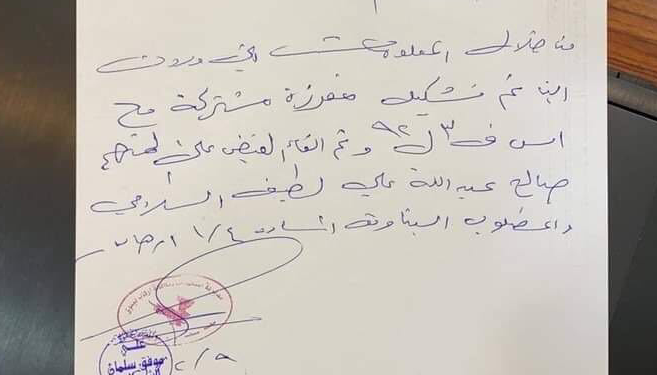 من خلال المعلومات التي وردت
الينا تم تشكيل مفرزة مشتركة مع
اس ف٣ ل٩٢ وتم القاء القبض على المتهم
صالح عبد الله علي لطيف السلامي
والمطلوب الى المادة ٤/١ ارهاب
على
موفق سلمان